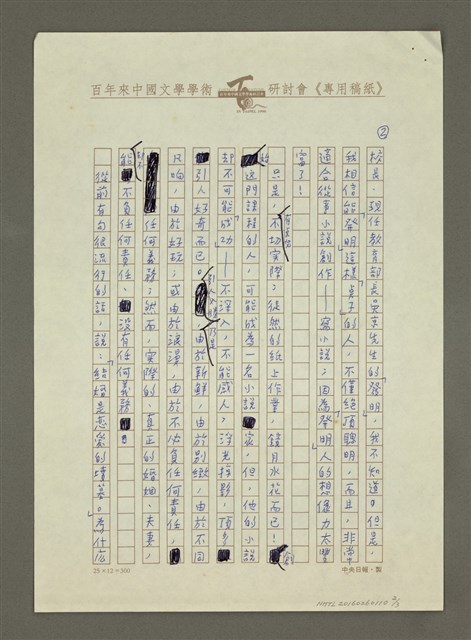 百年來中國文學學術研討會《專用稿紙》
②
校長、現任教育部長吳京先生的發明,我不知道。但是,
我相信能「發明」這樣「桌子」的人,不僅絕頂聰明,而且,非常
適合從事小說創作——寫小說;因為「發明」人的想像力太豐
富了!
只是,不切實際;徒然的紙上作業,鏡月水花而已!
這門課程的人,可能成為一名小說家,但,他的小說
却不可能成功——不深入,不能感人;浮光掠影,頂多
引人好奇而已。由於新鮮,由於別緻,由於不同
凡响,由於好玩;或由於浪漫,由於不必負任何責任,
任何義務;然而,實際的、真正的婚姻、夫妻,
能不負任何責任、沒有任何義務。
從前有句很流行的話,說:「結婚是戀愛的墳墓。」為什麼
25×12=300
中央日報・製